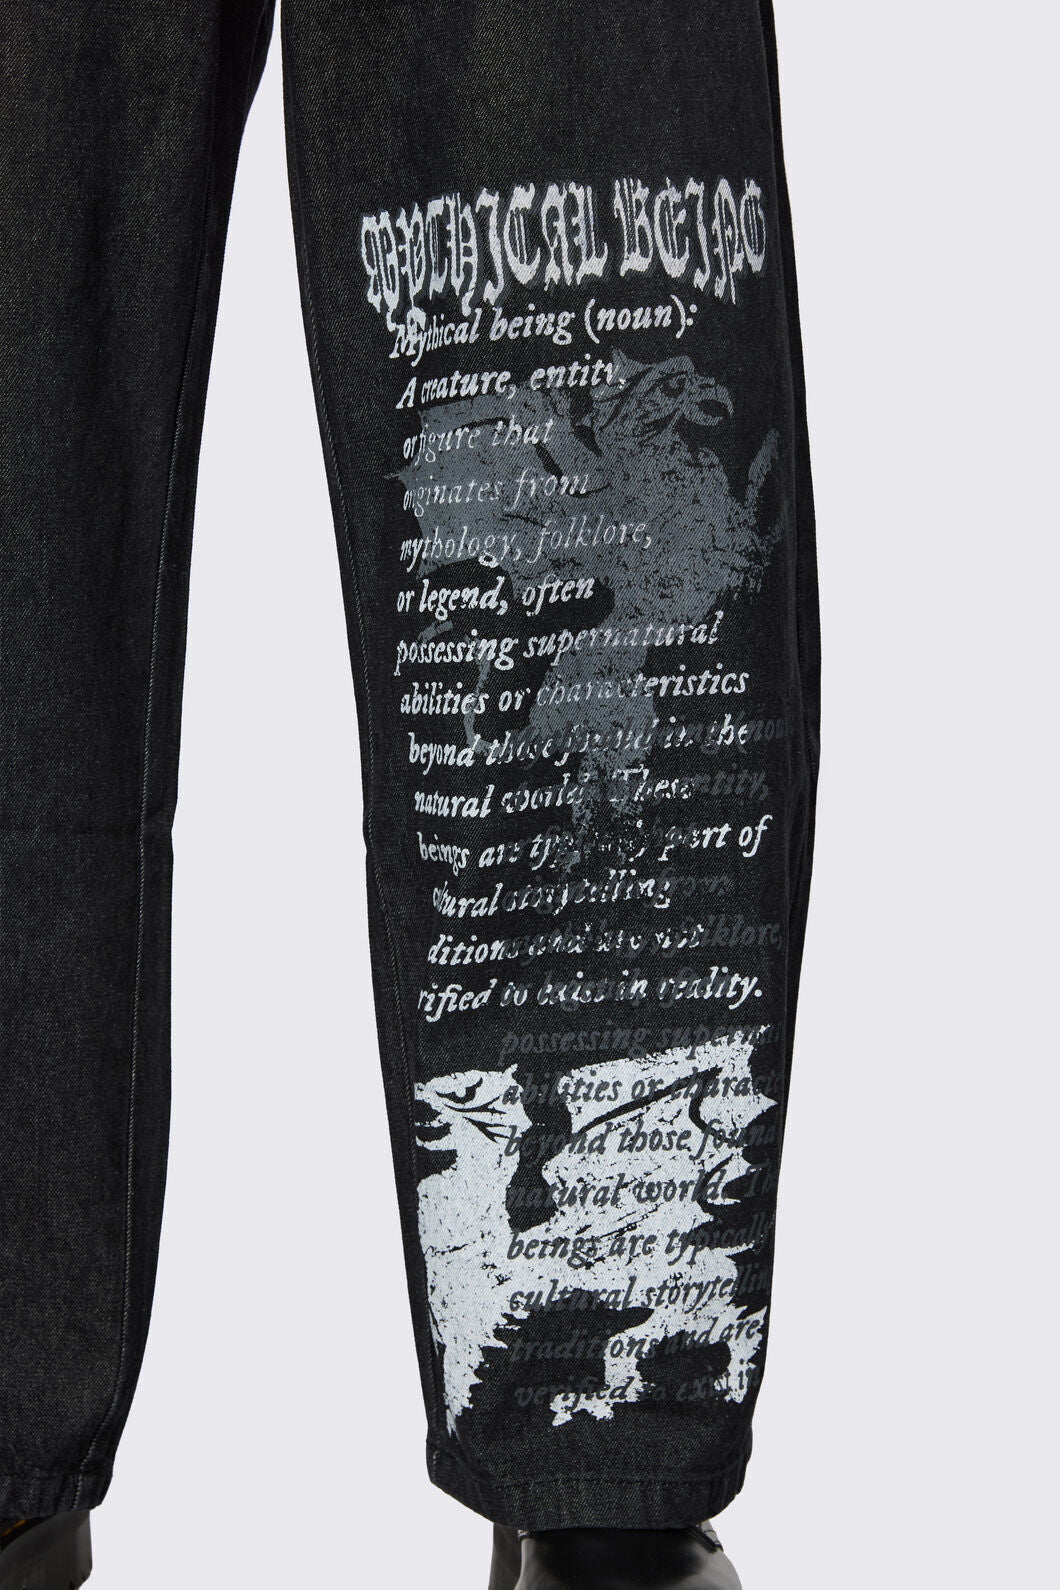 MYTHICAL BEING
Mythical being (noun):
A creature, entity,
or figure that
originates from
mythology, folklore,
or legend, often
possessing supernatural
abilities or characteristics
beyond those found in the
natural world. These
beings are typically part of
ltural storytelling
ditions and are not
rified to exist in reality.
noun
entity,
from
folklore,
possessing superna
abilities or characte
beyond those found
natural world. Th
beings are typically
cultural storytellin
traditions and are
verified to exist in